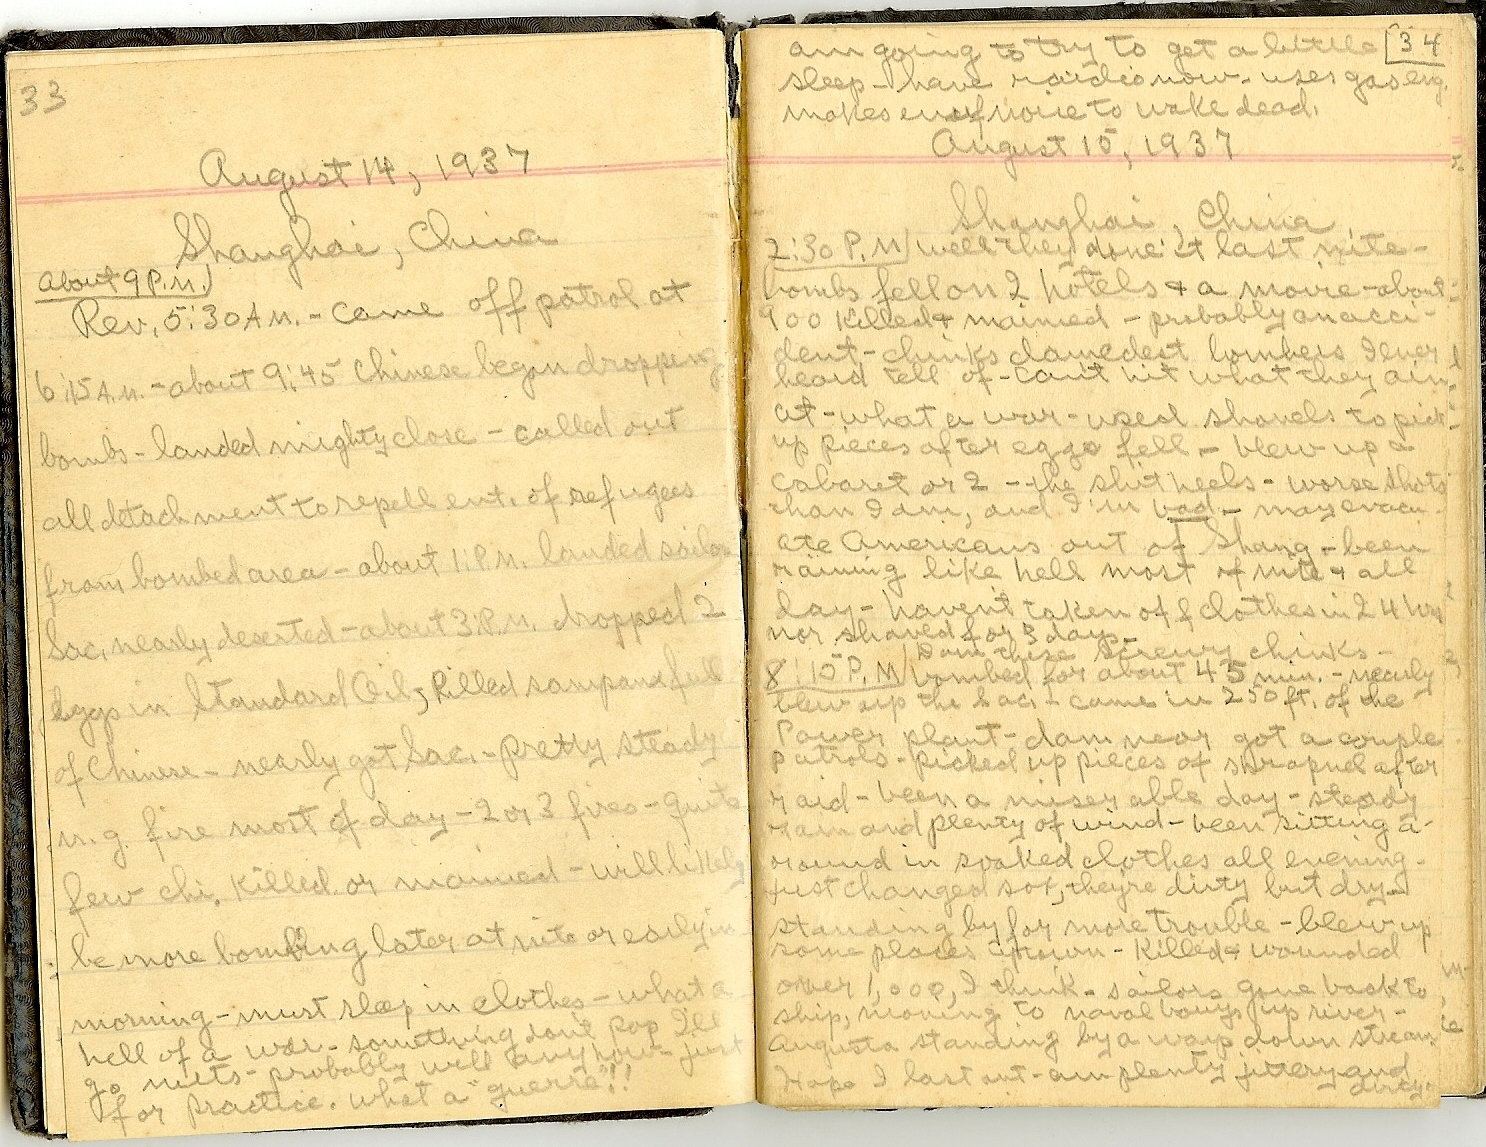 33
August 14, 1937
Shanghai, China
About 9 P.M.)
Rev. 5:30 A.M. - came off patrol at
6:15 A.M. - about 9:45 Chinese began dropping
bombs - landed mighty close - called out
all detachment to repell ent. of refugees
from bombed area - about 1 P.M. landed sailors
Soc. nearly deserted - about 3 P.M. dropped 2
Eggs in Standard Oil, Killed sampans full
of Chinese - nearly got Soc. - pretty steady
m.g. fire most of day - 2 or 3 fires - quite
few chi. killed or maimed - will likely
be more bombing later, at nite or early in
morning - must sleep in clothes - what a
hell of a war - something don't pop I'll
go nuts - probably will anyhow - just
for practice. what a "guerre"!!
34
am going to try to get a little
sleep - have radio now - uses gas eng.
makes enuf noise to wake dead.
August 15, 1937
Shanghai, China
2:30 P.M.) well they done it last nite -
bombs fell on 2 hotels & a movie - about
900 killed & maimed - probably an acci-
dent - chinks damedest bombers I ever
heard tell of - can't hit what they aim
at - what a war - used shovels to pick
up pieces after eggs fell - blew up a
cabaret or 2 - the shit heels - worse shots
than I am, and I'm bad - may evacu-
ate Americans out of Shang - been
raining like hell most of nite & all
day - haven't taken off clothes in 24 hrs
nor shaved for 3 days -
Dam these screwy chinks -
8:15 P.M) bombed for about 45 min. - nearly
blew up the Soc. - came in 250 ft. of the
Power plant - dam near got a couple
patrols - picked up pieces of shrapnel after
raid - been a miserable day - steady
rain and plenty of wind - been sitting a-
round in soaked clothes all evening -
just changed sox, they're dirty but dry -
standing by for more trouble - blew up
some places uptown - Killed & wounded
over 1,000, I think - sailors gone back to
ship, moving to naval bouys up river -
Augusta standing by a ways down stream
Hope I last out - am plenty jittery and
dirty.